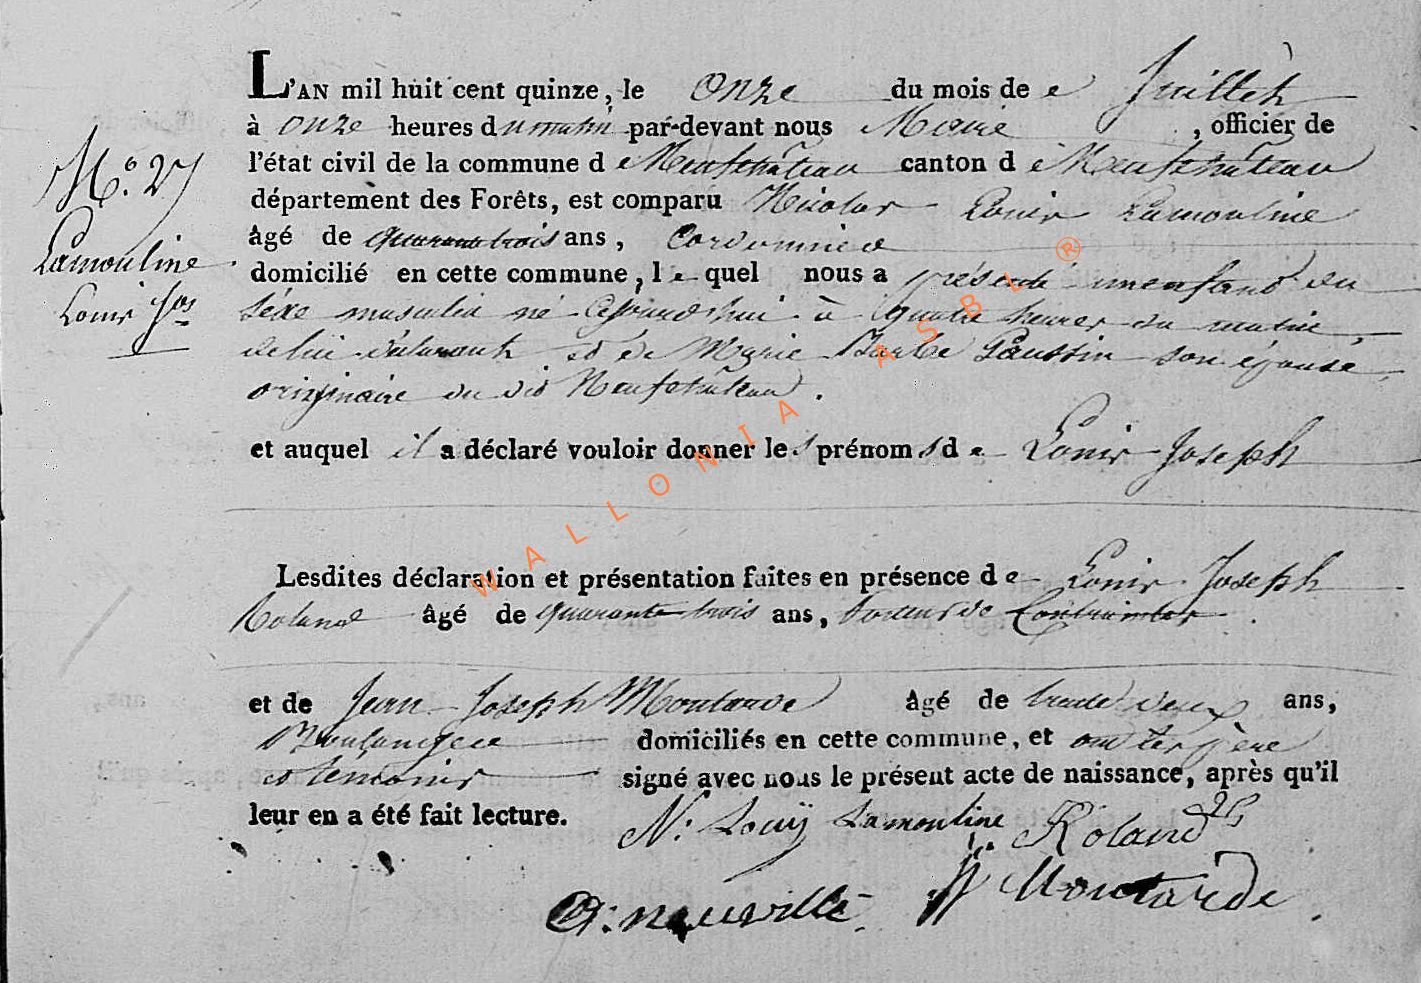 L'AN mil huit cent quinze, le onze du mois de Juillet
à onze heures du matin par-devant nous Maire, officier de
l'état civil de la commune de Neufchâteau canton de Neufchâteau
N.° 27
département des Forêts, est comparu Nicolas Louis Lamouline
âgé de quarante trois ans, Cordonnier
Lamouline
Louis Jos
domicilié en cette commune, lequel nous a présenté un enfant du
séxe masculin né cejourd'hui à quatre heures du matin
de lui déclarant et de Marie Barbe Gaussin son épouse
originaire du dit Neufchâteau.
et auquel il a déclaré vouloir donner les prénoms de Louis Joseph
Lesdites déclaration et présentation faites en présence de Louis Joseph
Roland âgé de quarante trois ans, de Contraintes
et de Jean Joseph Moutarde âgé de trente deux ans,
Boulanger domiciliés en cette commune, et ont les père
et temoins signé avec nous le présent acte de naissance, après qu'il
leur en a été fait lecture.
N: Louis Lamouline Roland
J. J. Moutarde
neuville
WALLONIA ASBL ®